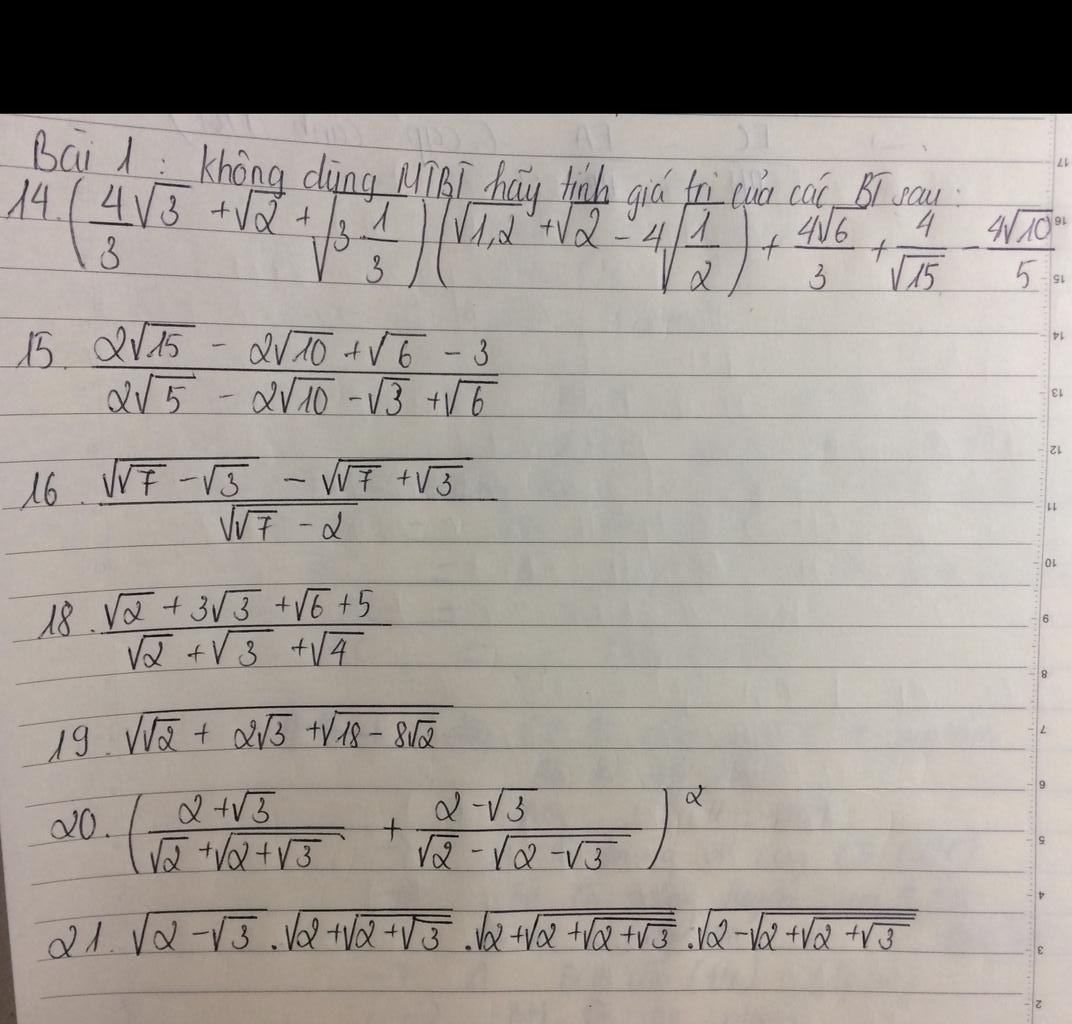 Bài 1 : không dùng MTBT hãy tính giá trị của các BT sau :
14. (4√3/3 + √2 + √(3 1/3))(√1,2 + √2 − 4√(1/2)) + 4√6/3 + 4/√15 − 4√10/5
15. (2√15 − 2√10 + √6 − 3)/(2√5 − 2√10 − √3 + √6)
16. (√(√7 − √3) − √(√7 + √3))/√(√7 − 2)
18. (√2 + 3√3 + √6 + 5)/(√2 + √3 + √4)
19. √(√2 + 2√3 + √(18 − 8√2))
20. ((2 + √3)/(√2 + √(2 + √3)) + (2 − √3)/(√2 − √(2 − √3)))²
21. √(2 − √3) . √(2 + √(2 + √3)) . √(2 + √(2 + √(2 + √3))) . √(2 − √(2 + √(2 + √3)))
17
16
15
14
13
12
11
10
9
8
7
6
5
4
3
2